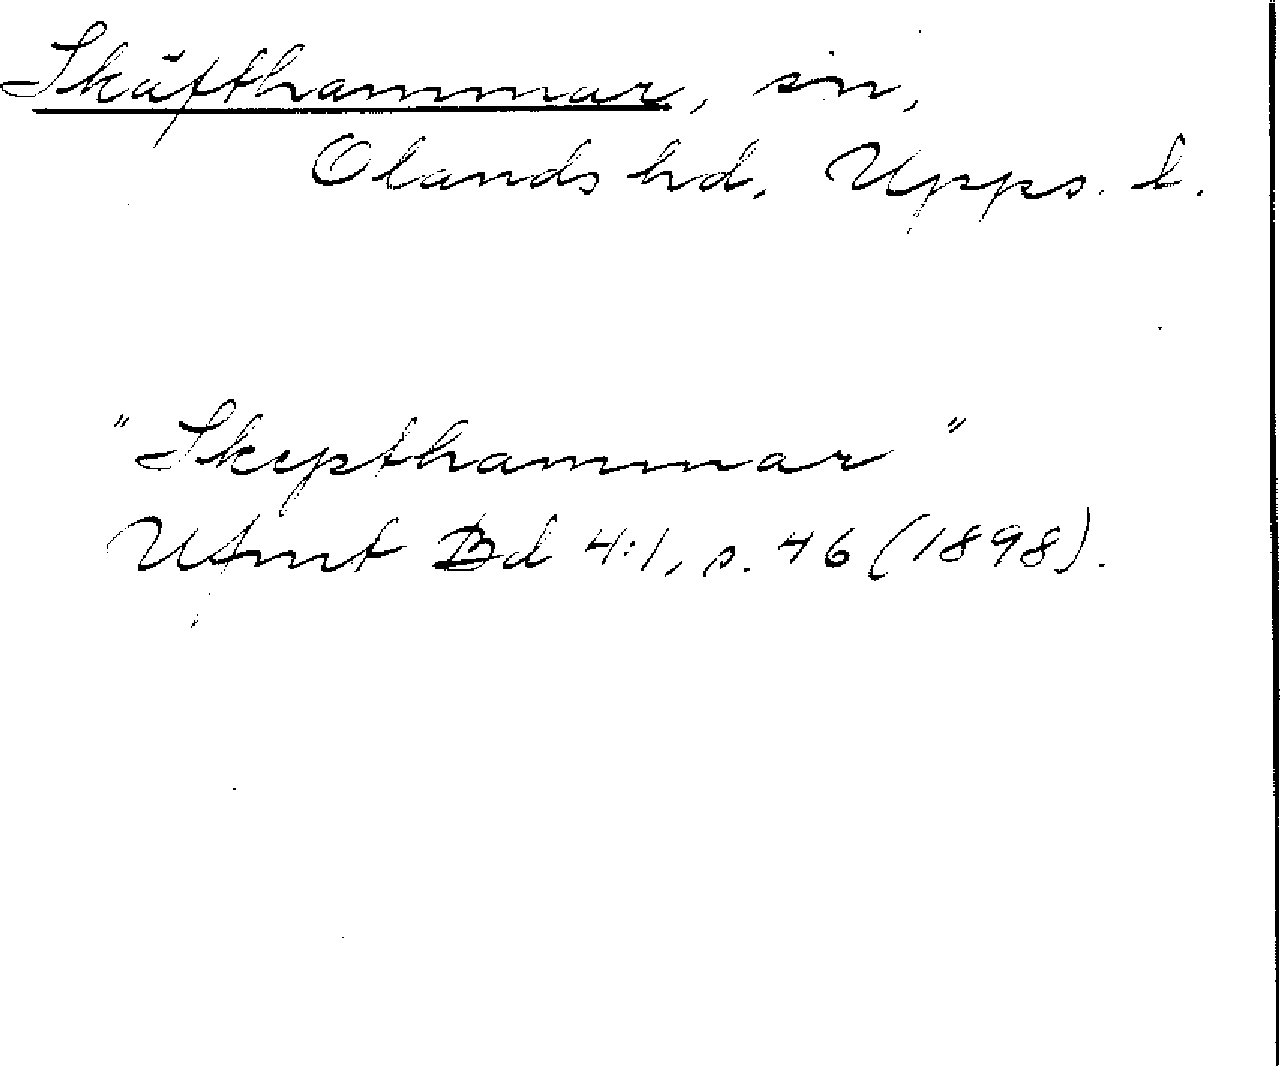 Skäfthammar, sn,
Olands hd, Upps. l.
"Skepthammar"
Ufmt Bd 4:1, s. 46 (1898).